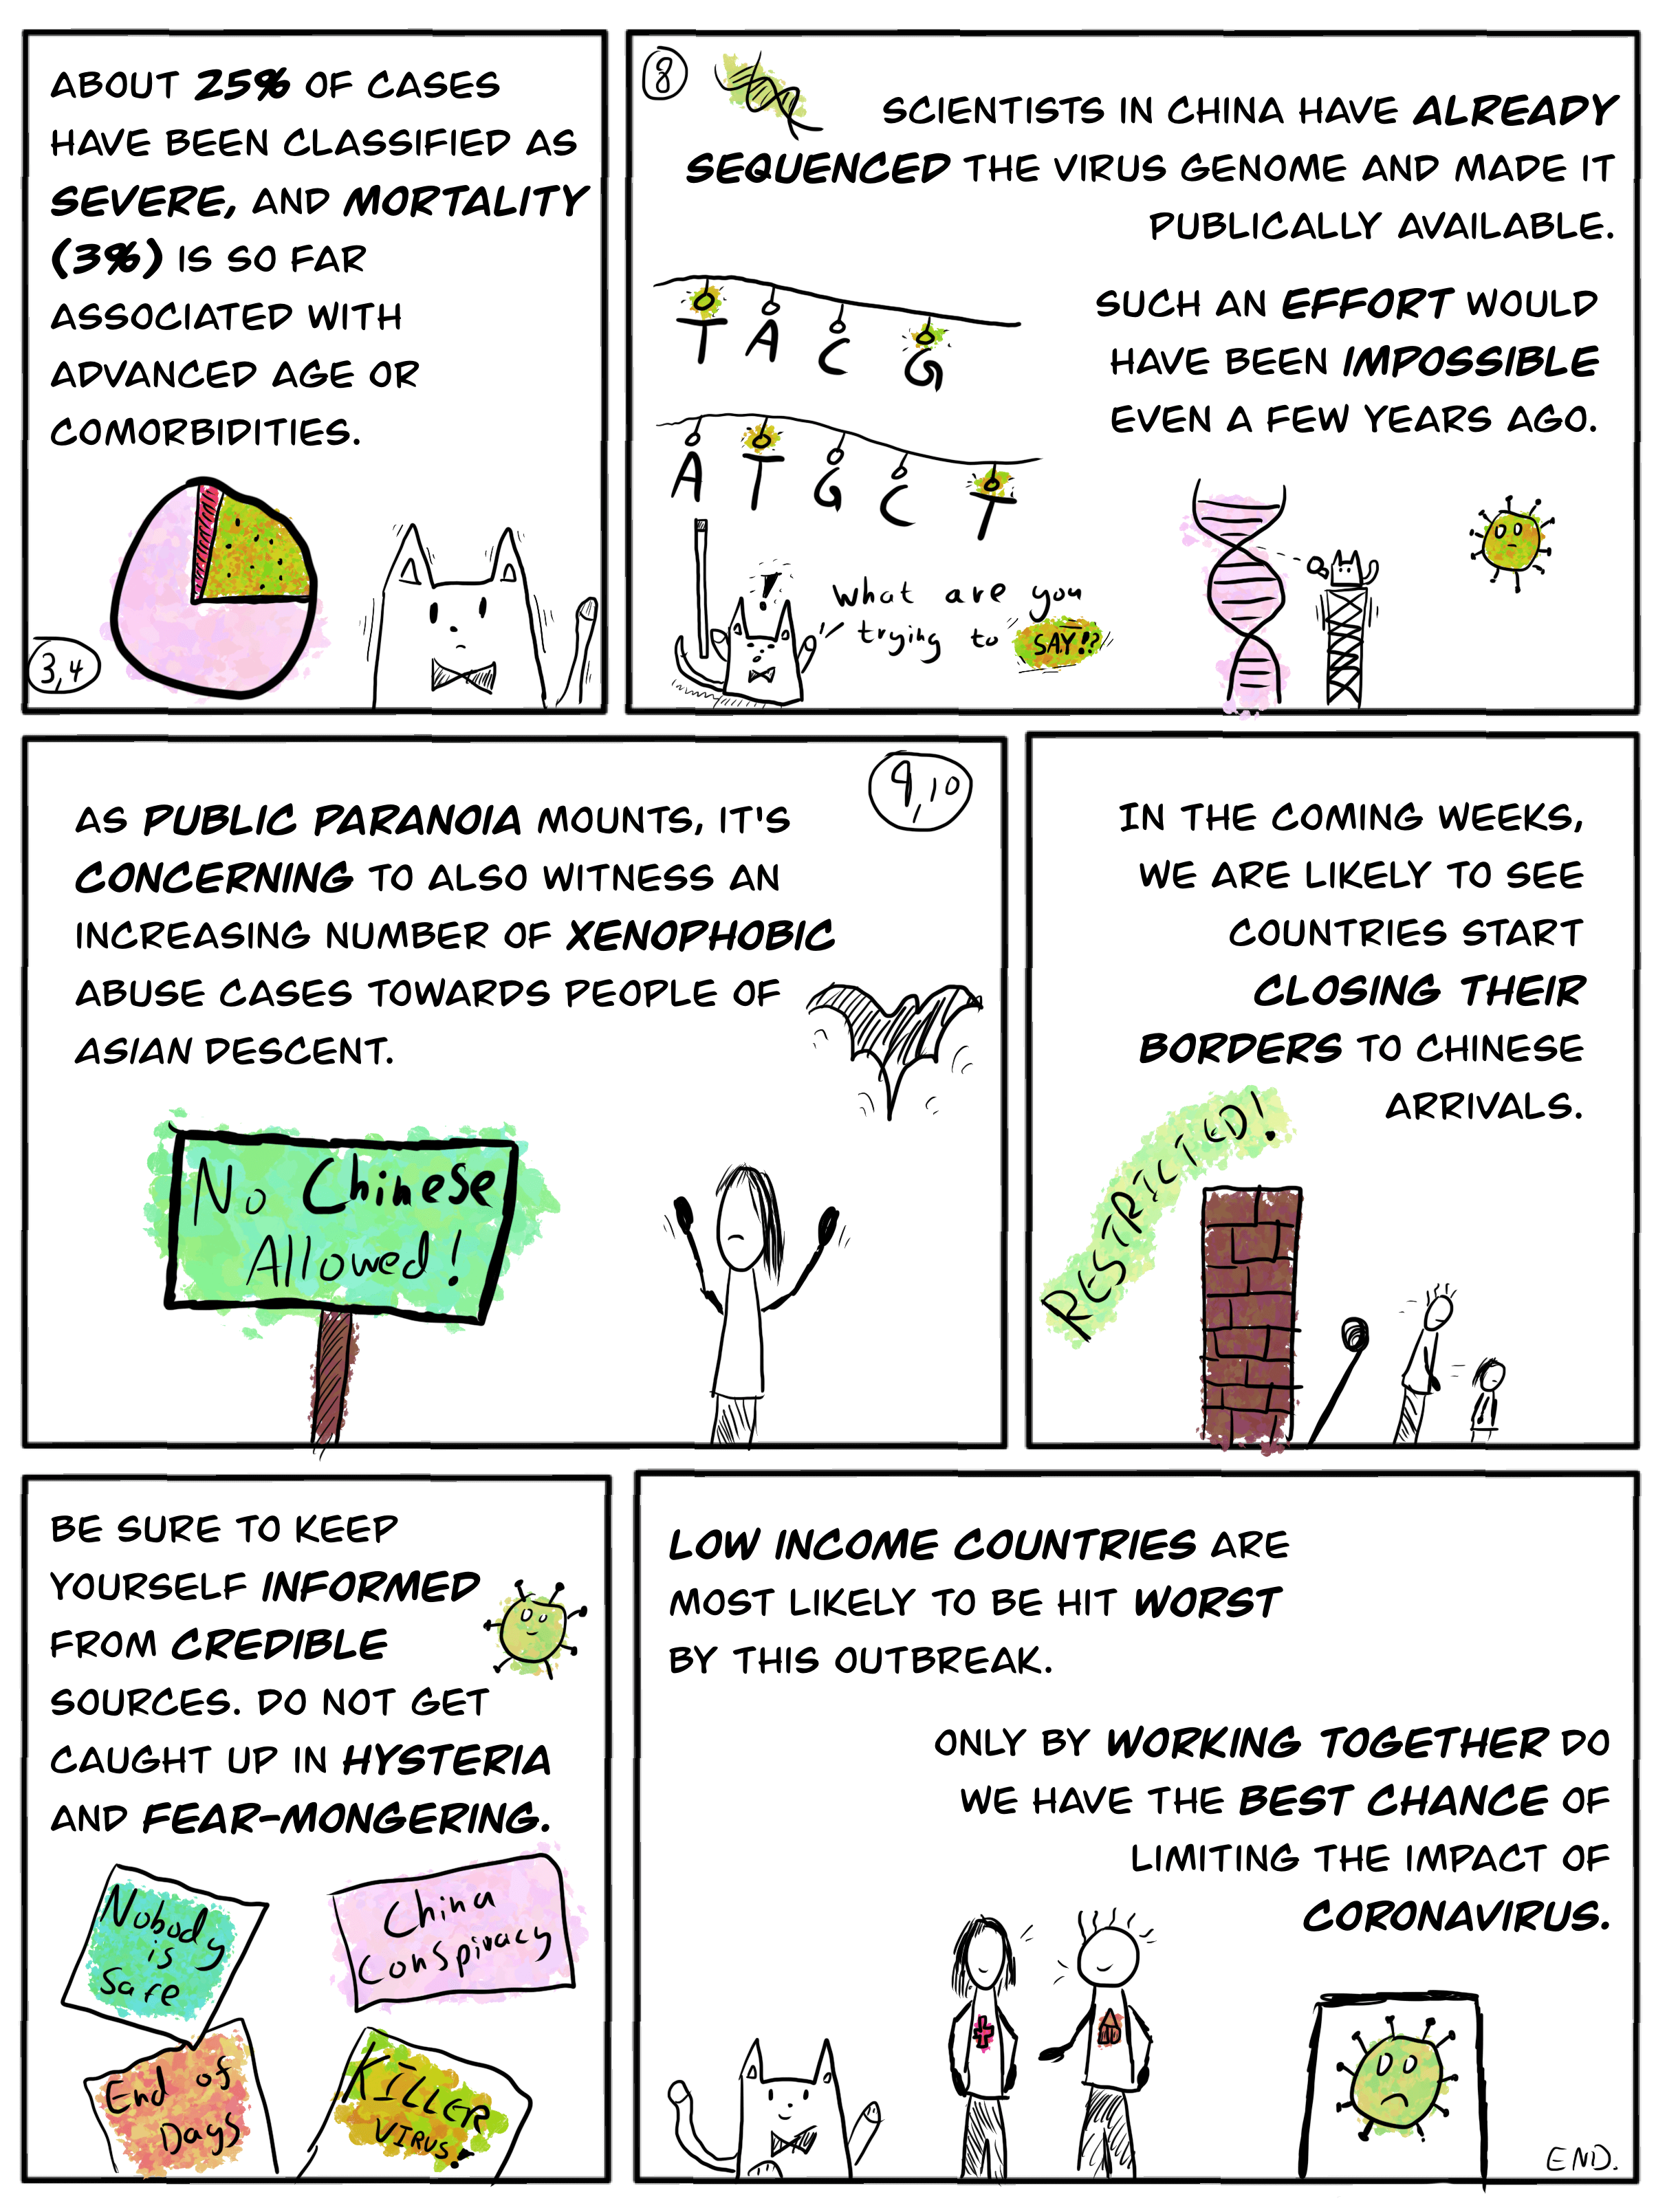 ABOUT 25% OF CASES
HAVE BEEN CLASSIFIED AS
SEVERE, AND MORTALITY
(3%) IS SO FAR
ASSOCIATED WITH
ADVANCED AGE OR
COMORBIDITIES.
3,4
8
SCIENTISTS IN CHINA HAVE ALREADY
SEQUENCED THE VIRUS GENOME AND MADE IT
PUBLICALLY AVAILABLE.
SUCH AN EFFORT WOULD
HAVE BEEN IMPOSSIBLE
EVEN A FEW YEARS AGO.
T A C G
A T G C T
!
What are you
trying to SAY!?
9,10
AS PUBLIC PARANOIA MOUNTS, IT'S
CONCERNING TO ALSO WITNESS AN
INCREASING NUMBER OF XENOPHOBIC
ABUSE CASES TOWARDS PEOPLE OF
ASIAN DESCENT.
No Chinese
Allowed!
IN THE COMING WEEKS,
WE ARE LIKELY TO SEE
COUNTRIES START
CLOSING THEIR
BORDERS TO CHINESE
ARRIVALS.
RESTRICTED!
BE SURE TO KEEP
YOURSELF INFORMED
FROM CREDIBLE
SOURCES. DO NOT GET
CAUGHT UP IN HYSTERIA
AND FEAR-MONGERING.
Nobody
is
Safe
China
Conspiracy
End of
Days
KILLER
VIRUS!
LOW INCOME COUNTRIES ARE
MOST LIKELY TO BE HIT WORST
BY THIS OUTBREAK.
ONLY BY WORKING TOGETHER DO
WE HAVE THE BEST CHANCE OF
LIMITING THE IMPACT OF
CORONAVIRUS.
END.